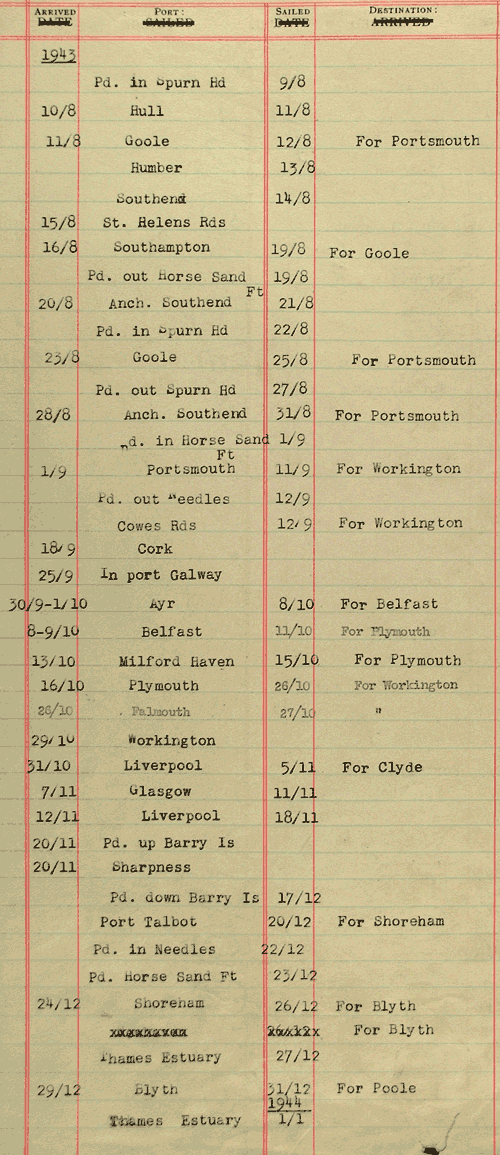 ARRIVED PORT: SAILED DESTINATION:
DATE SAILED DATE ARRIVED
1943
Pd. in Spurn Hd 9/8
10/8 Hull 11/8
11/8 Goole 12/8 For Portsmouth
Humber 13/8
Southend 14/8
15/8 St. Helens Rds
16/8 Southampton 19/8 For Goole
Pd. out Horse Sand Ft 19/8
20/8 Anch. Southend 21/8
Pd. in Spurn Hd 22/8
23/8 Goole 25/8 For Portsmouth
Pd. out Spurn Hd 27/8
28/8 Anch. Southend 31/8 For Portsmouth
Pd. in Horse Sand Ft 1/9
1/9 Portsmouth 11/9 For Workington
Pd. out Needles 12/9
Cowes Rds 12/9 For Workington
18/9 Cork
25/9 In port Galway
30/9-1/10 Ayr 8/10 For Belfast
8-9/10 Belfast 11/10 For Plymouth
13/10 Milford Haven 15/10 For Plymouth
16/10 Plymouth 26/10 For Workington
26/10 . Falmouth 27/10 "
29/10 Workington
31/10 Liverpool 5/11 For Clyde
7/11 Glasgow 11/11
12/11 Liverpool 18/11
20/11 Pd. up Barry Is
20/11 Sharpness
Pd. down Barry Is 17/12
Port Talbot 20/12 For Shoreham
Pd. in Needles 22/12
Pd. Horse Sand Ft 23/12
24/12 Shoreham 26/12 For Blyth
For Blyth
Thames Estuary 27/12
29/12 Blyth 31/12 For Poole
1944
Thames Estuary 1/1